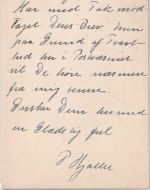 Har med Tak mod-
taget Deres Brev, men
paa Grund af Travl-
hed her i Postvæsnet
vil De høre nærmere
fra mig senere.
Ønsker Dem hermed
en Glædelig Jul
P. Hjalte